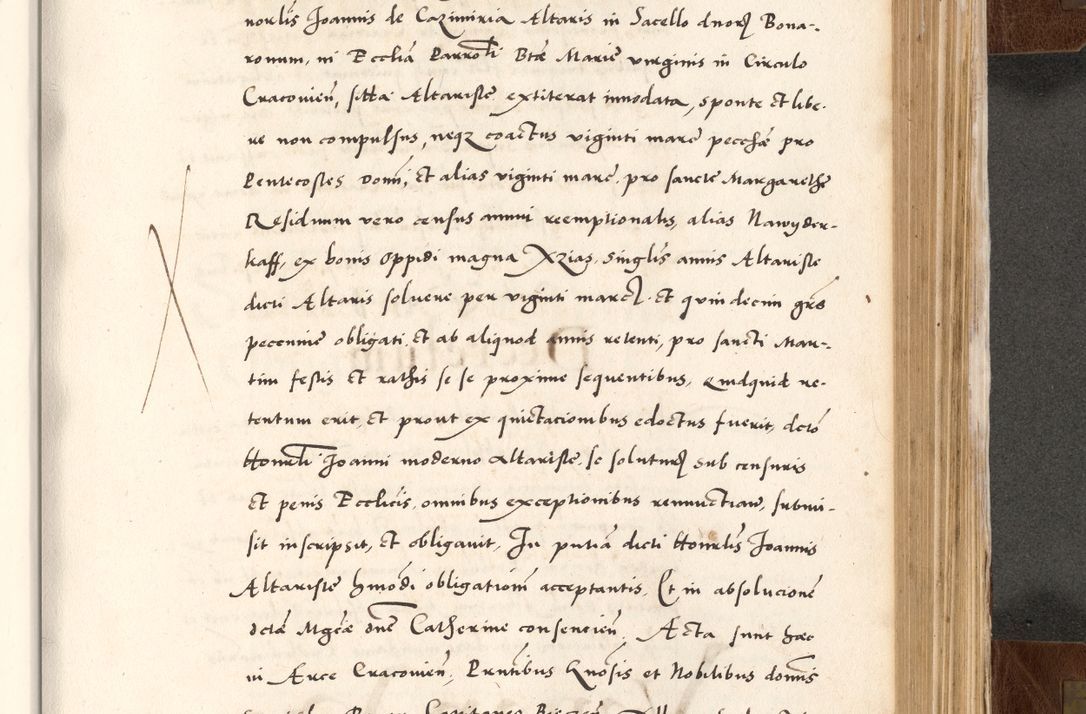 norlis Joannis de Cazimiria Altaris in Sacello dnorꝝ Bona-
ronum, in Ecclīa Parroli Btæ Mariæ virginis in Circulo
Cracovien̄, sitta Altaristæ extiterat innodata, sponte et libe-
re non compulsus, neqꝫ coactus viginti marc̄ pecchæ pro
Pentecostes Domi, et alias viginti marc̄. pro sanctæ Margarethæ
Residuum vero census annui reemptionalis, alias Nawyder-
kaff, ex bonis Oppidi magna Xzias, singlis annis Altaristæ
dicti Altaris solvere per viginti marcꝝ. et quindecim grs
pecuniæ obligati, et ab aliquod annis retenti, pro sancti Mar-
tini festis et rathis se se proxime sequentibus, quidquid re-
tentum erit, et prout ex quictacionibus edoctus fuerit, dcto
Honrli Joanni moderno altaristæ, se soluturꝝ sub censuris
et penis Ecclicis, omnibus exceptionibus renunctians, submi-
sit inscripsit, et obligavit, In pntia dicti Honrlis Joannis
Altaristæ hmōdi obligationi acceptantis, Et in absolucione
dctæ Mgcæ dnē Catherinæ consencien̄. Acta sunt hæc
in Arce Cracovien̄, Prntibus Gnosis et Nobilibus domīs